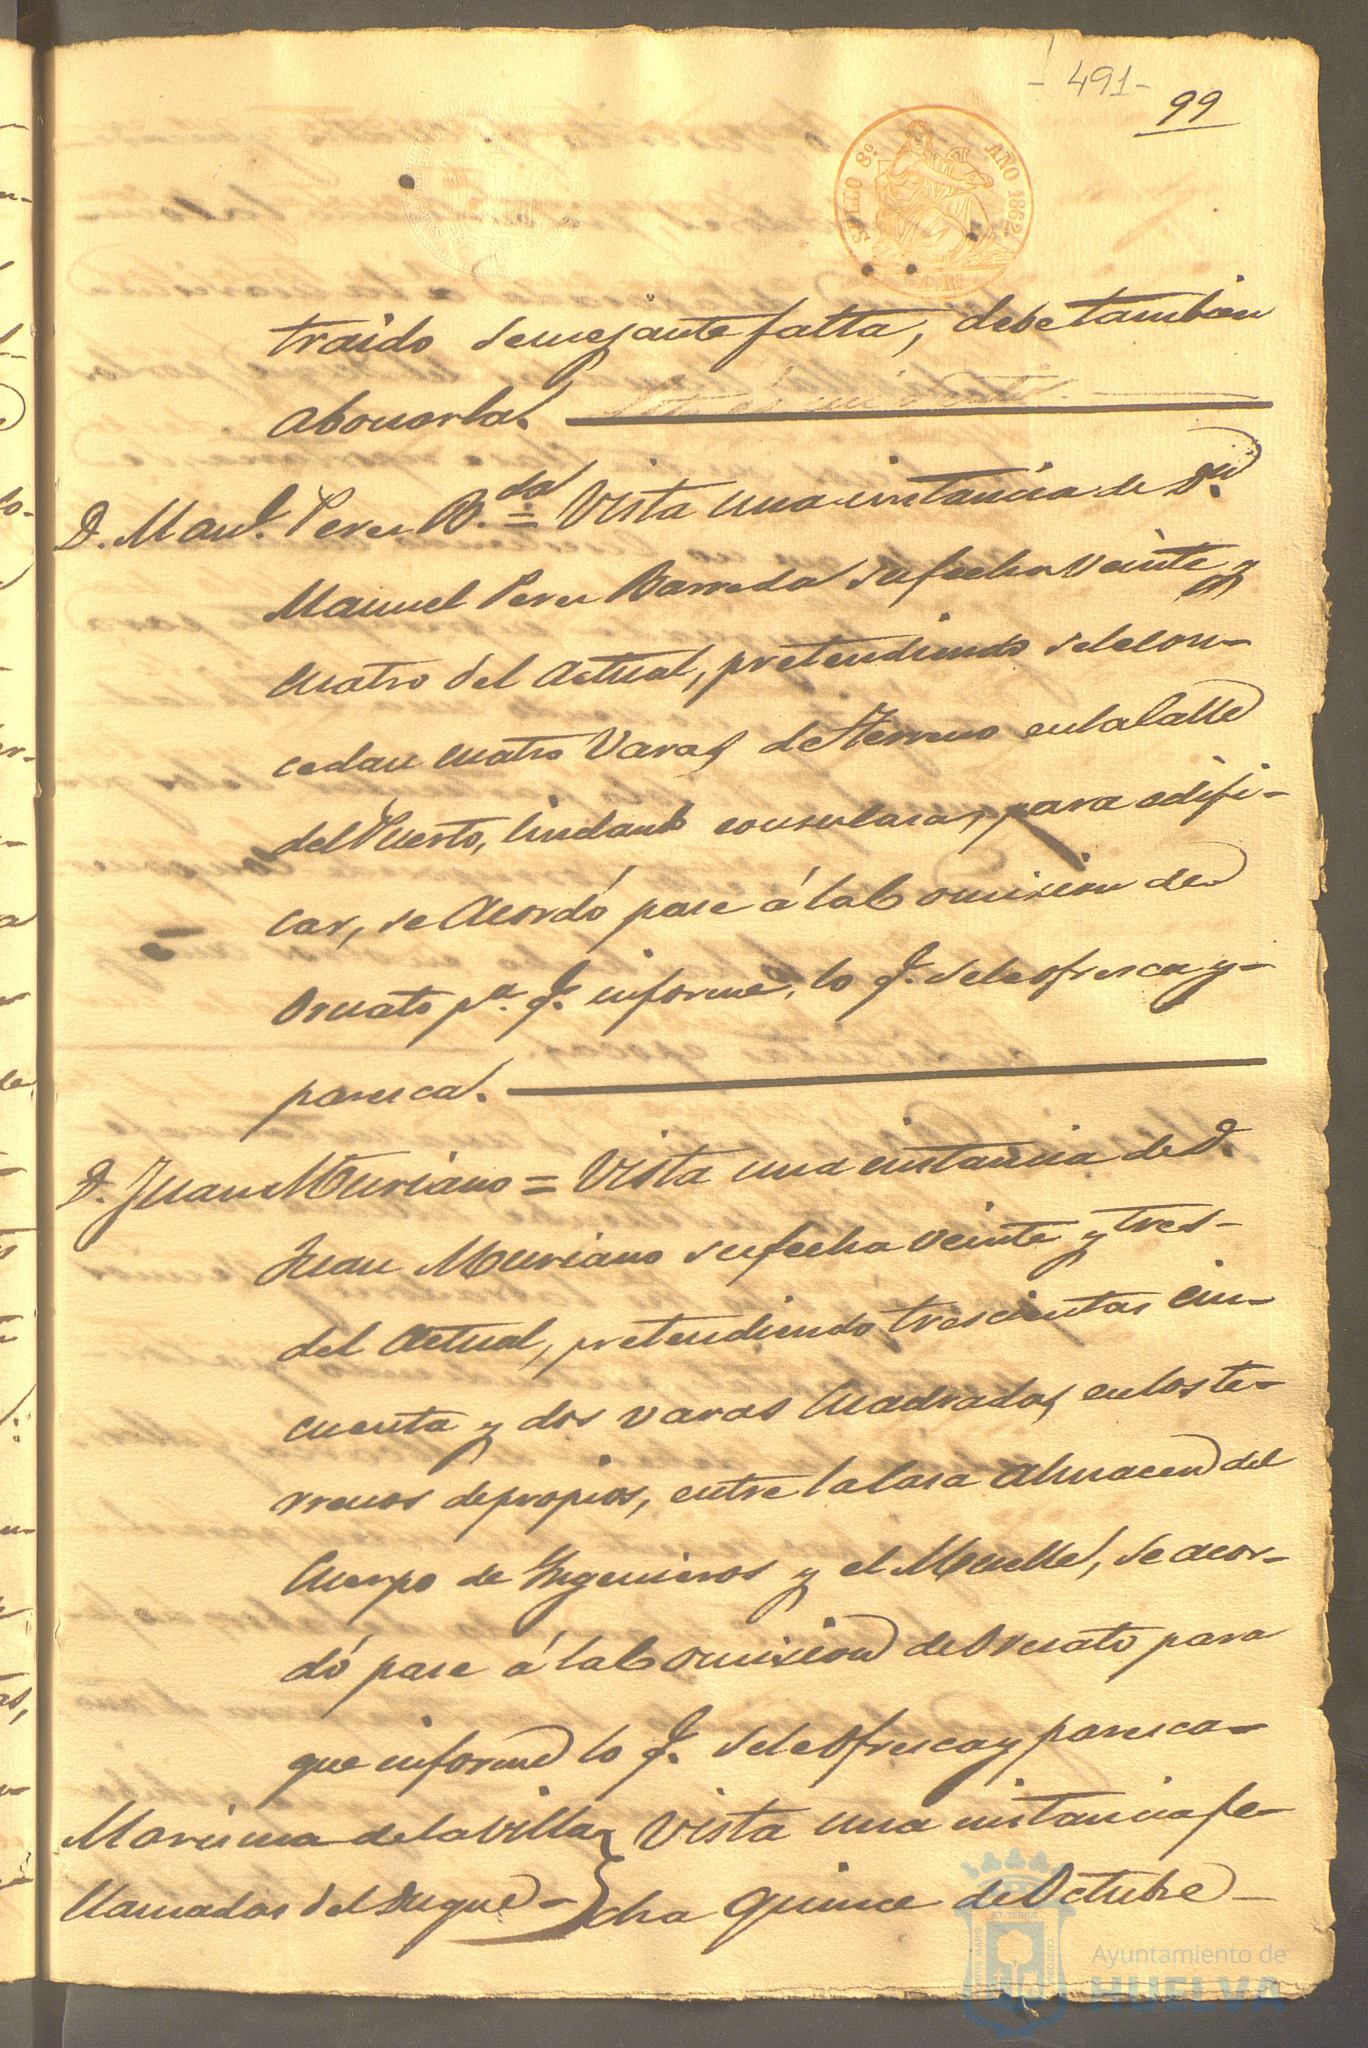 - 491 -
99
SELLO 8º. AÑO 1862.
traido semejante falta, debe tambien
abonarla.
D. Manl. Perez B.da = Vista una instancia de Dn.
Manuel Perez Barreda su fecha veinte y
cuatro del actual, pretendiendo se le con-
cedan cuatro varas de terreno en la Calle
del Puerto, lindante con su casa, para edifi-
car, se acordó pase á la Comision de
Ornato pa. q. informe, lo q. se le ofresca y-
paresca.
D. Juan Muriano = Vista una instancia de D.
Juan Muriano su fecha veinte y tres-
del actual, pretendiendo trescientas cin-
cuenta y dos varas cuadradas en los te-
rrenos de propios, entre la casa almacen del
Cuerpo de Ingenieros y el Muelle, se acor-
dó pase á la Comision de Ornato para
que informe lo q. se le ofresca y paresca-
Marisma de la villa } Vista una instancia fe-
llamadas del Duque- } cha quince de Octubre-
Ayuntamiento de
HUELVA